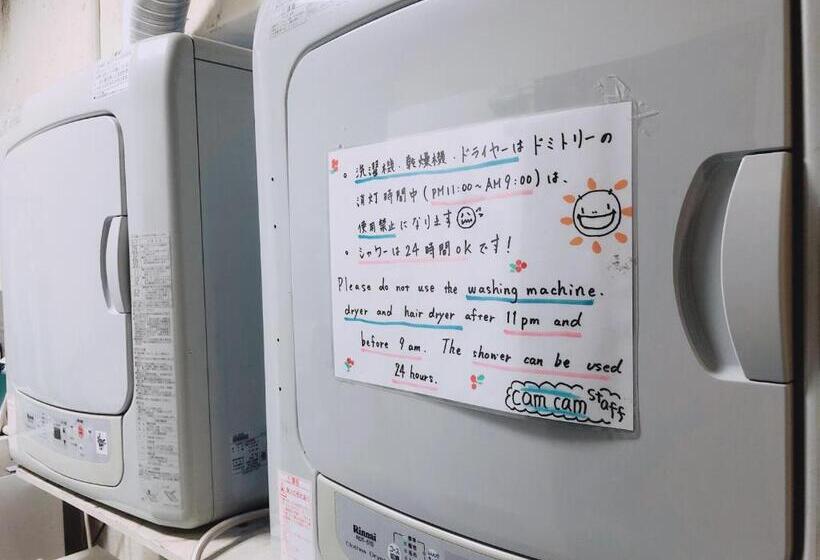 。洗濯機・乾燥機・ドライヤーはドミトリーの
消灯時間中(PM11:00~AM9:00)は、
使用禁止になります
。シャワーは24時間OKです!
Please do not use the washing machine.
dryer and hair dryer after 11pm and
before 9 am. The shower can be used
24 hours.
cam cam staff
Rinnai
Clothes Dryer